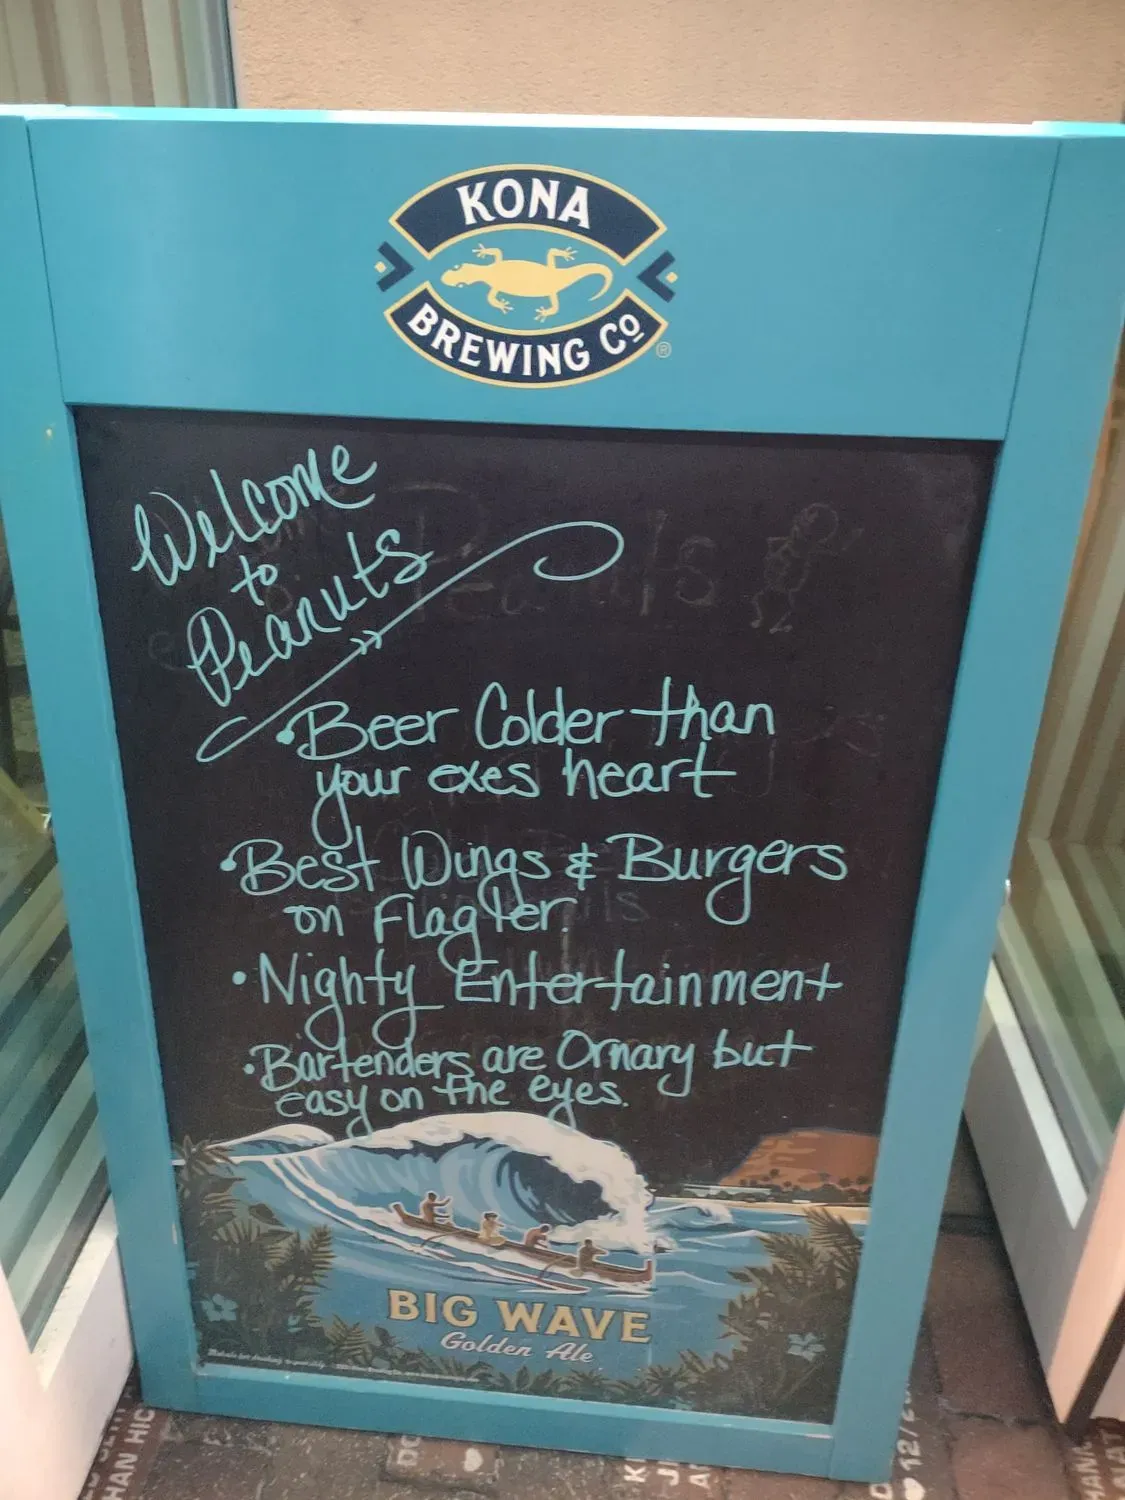 KONA
BREWING CO
®
Welcome
to
Peanuts
• Beer Colder than
your exes heart
• Best Wings & Burgers
on Flagler.
• Nighty Entertainment
• Bartenders are Ornary but
easy on the eyes.
BIG WAVE
Golden Ale
HAN HIC
12/2